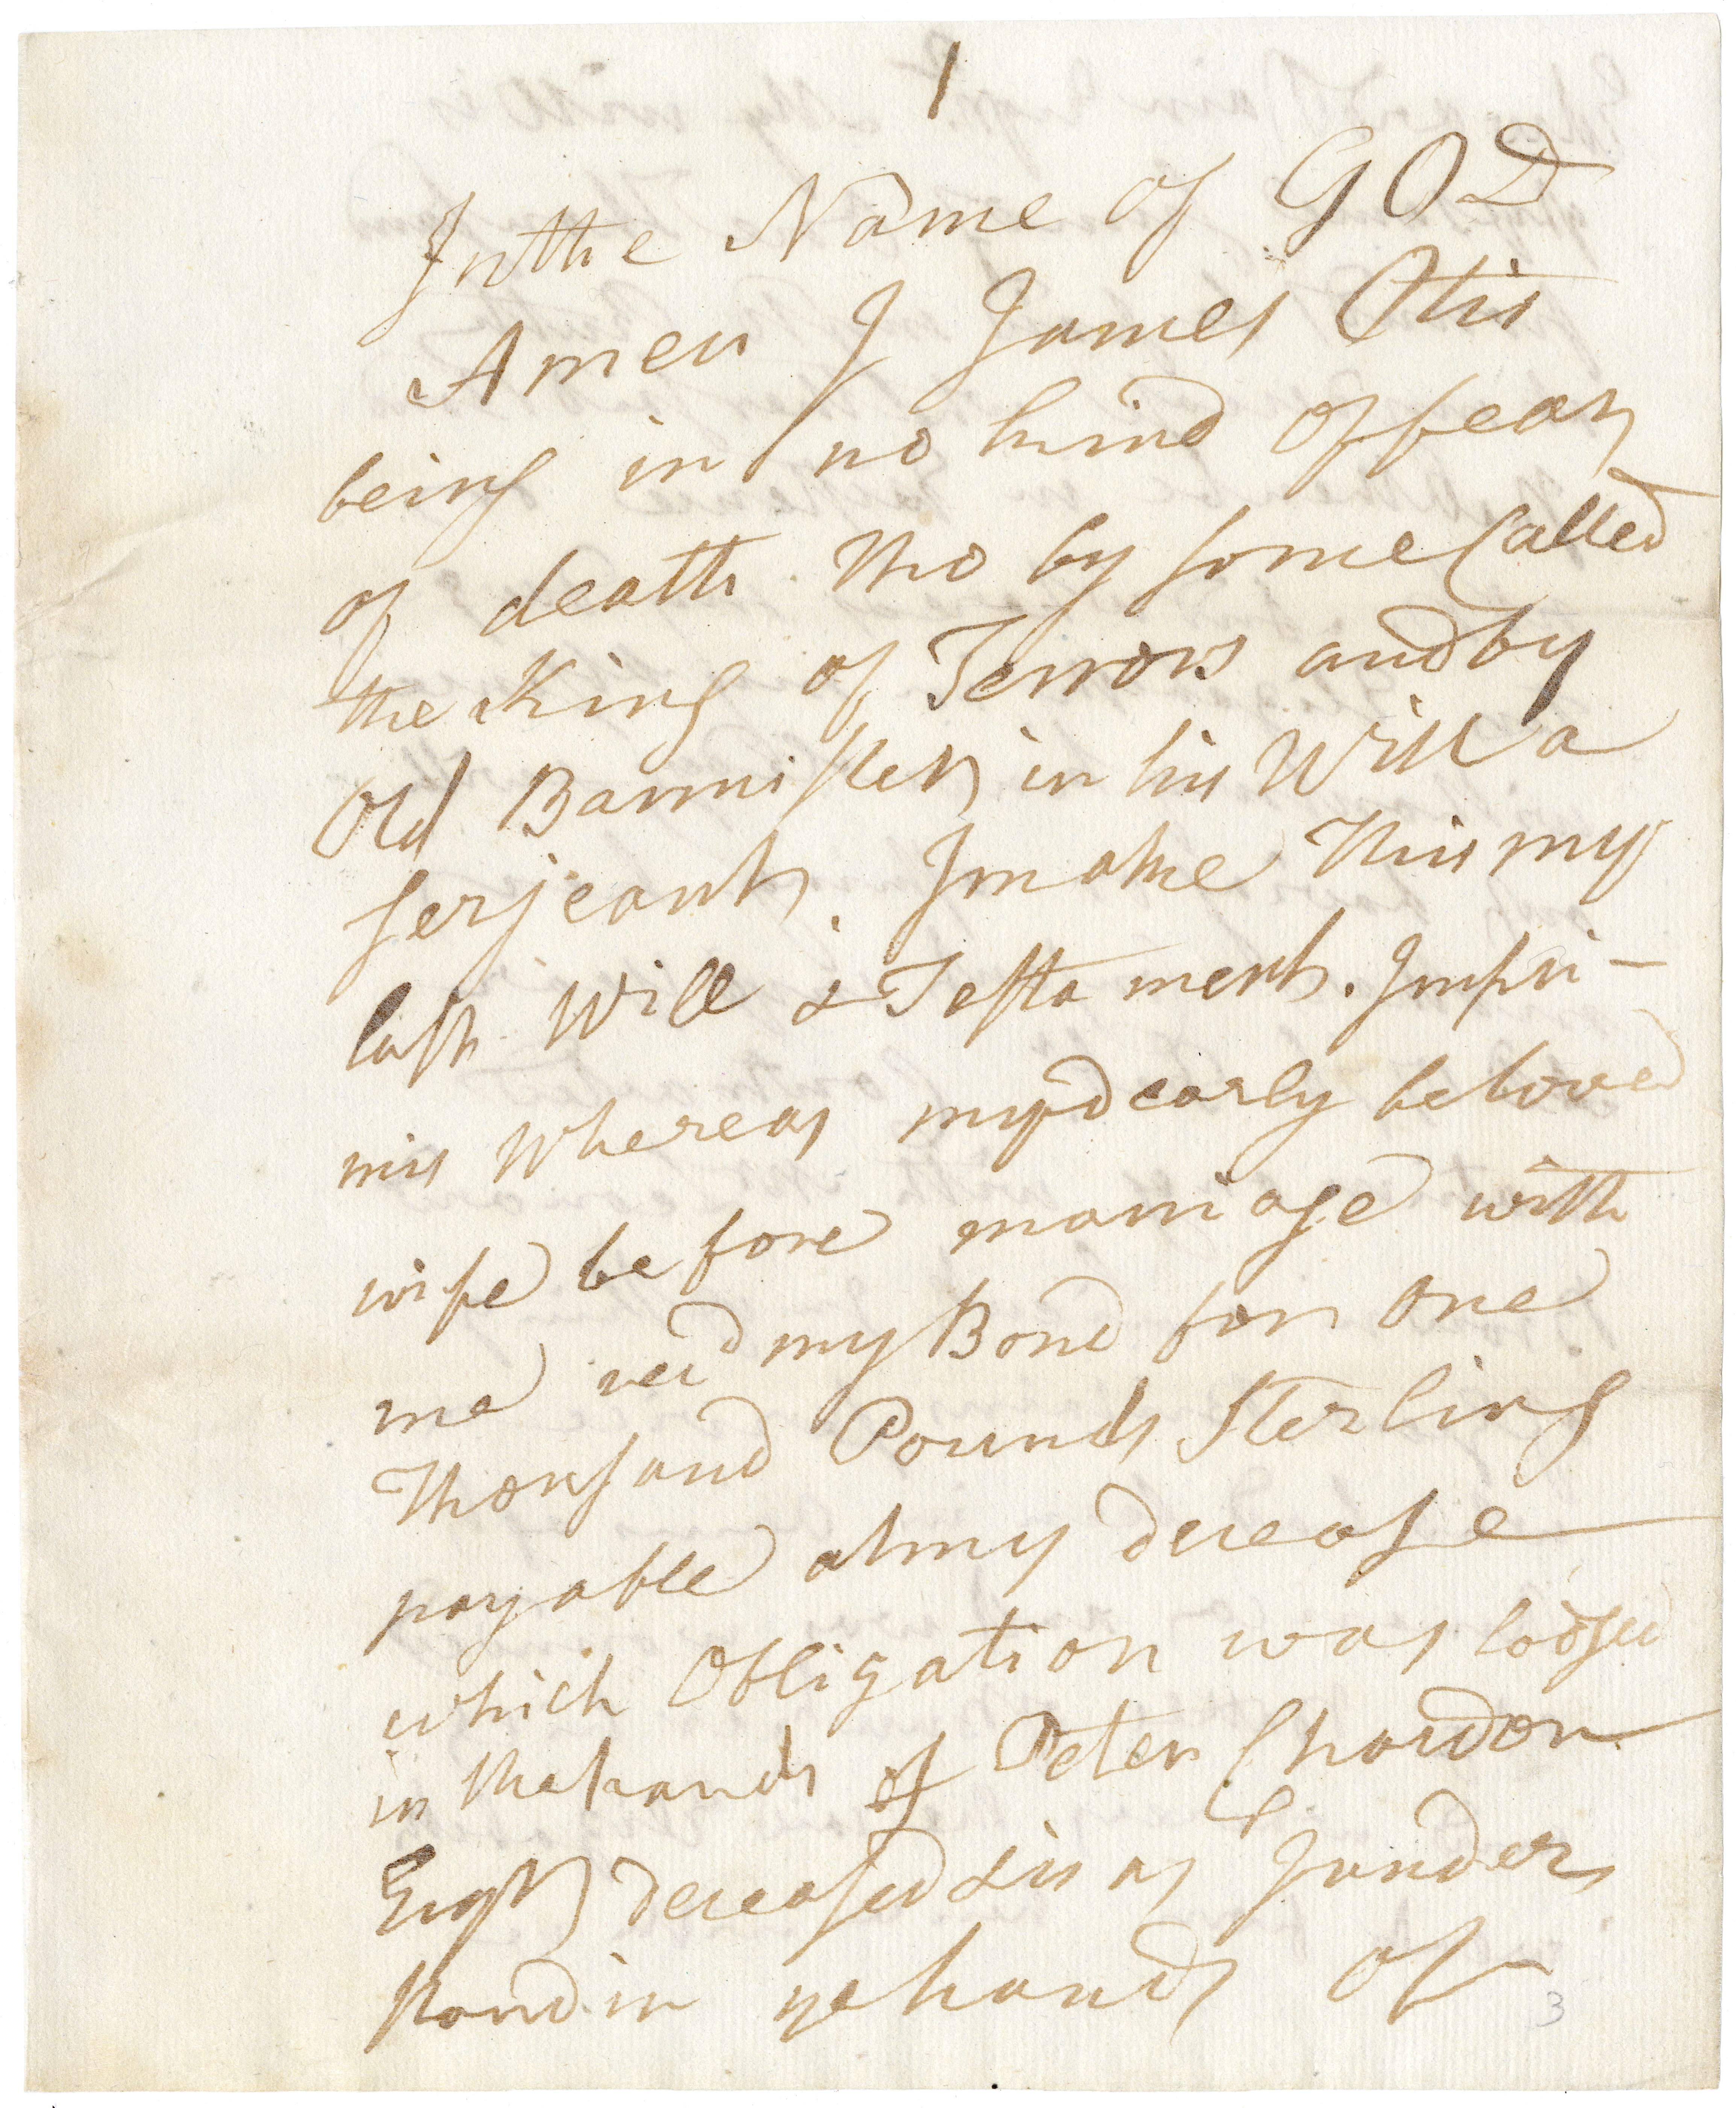 1
In the Name of GOD
Amen I James Otis
being in no kind of fear
of death tho by some Called
the King of Terrors and by
Old Bannister in his Will a
serjeant. I make this my
last Will & Testament. Impri-
mis Whereas my dearly beloved
wife before marriage with
me recd my Bond for One
Thousand Pounds Sterling
payable at my decease
which Obligation was lodged
in the hands of Peter Chardon
Esqr deceased & is as I under
stand in ye hands of
3